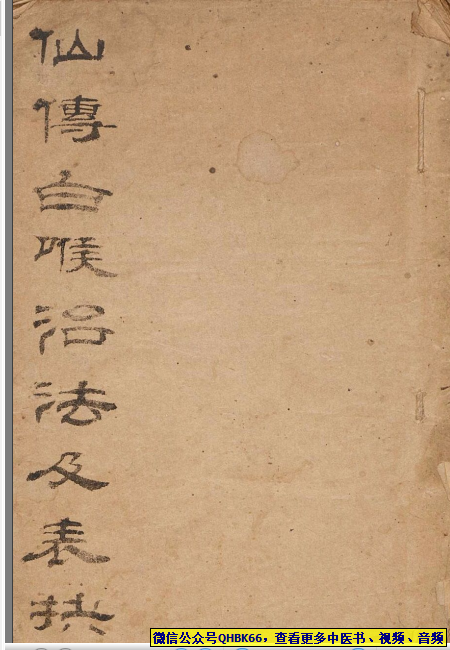 仙傳白喉治法及表抉
微信公众号QHBK66，查看更多中医书、视频、音频